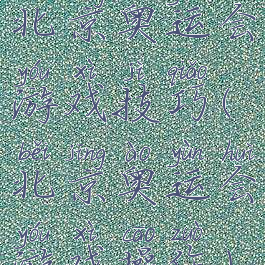 北京奥运会
yóu xì jì qiǎo
游戏技巧(
běi jīng ào yùn huì
北京奥运会
yóu xì cāo zuò
游戏操作(